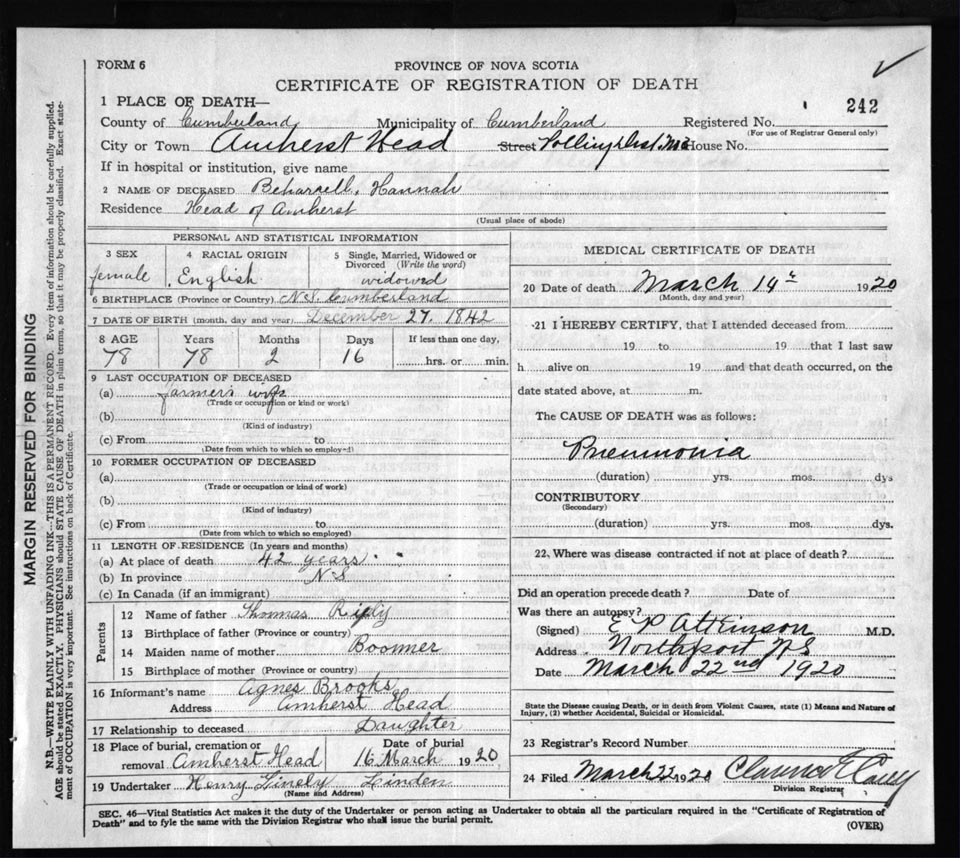 FORM 6
PROVINCE OF NOVA SCOTIA
CERTIFICATE OF REGISTRATION OF DEATH
242
1 PLACE OF DEATH—
County of Cumberland Municipality of Cumberland Registered No.
(For use of Registrar General only)
City or Town Amherst Head Street Polling Dist. House No.
If in hospital or institution, give name
2 NAME OF DECEASED Beharrell, Hannah
Residence Head of Amherst
(Usual place of abode)
PERSONAL AND STATISTICAL INFORMATION
3 SEX 4 RACIAL ORIGIN 5 Single, Married, Widowed or Divorced (Write the word)
female English widowed
6 BIRTHPLACE (Province or Country) N.S. Cumberland
7 DATE OF BIRTH (month, day and year) December 27, 1842
8 AGE Years Months Days If less than one day,
78 78 2 16 hrs. or min.
9 LAST OCCUPATION OF DECEASED
(a) farmer's wife
(Trade or occupation or kind or work)
(b)
(Kind of industry)
(c) From to
(Date from which to which so employed)
10 FORMER OCCUPATION OF DECEASED
(a)
(Trade or occupation or kind of work)
(b)
(Kind of industry)
(c) From to
(Date from which to which so employed)
11 LENGTH OF RESIDENCE (In years and months)
(a) At place of death 42 years
(b) In province N S
(c) In Canada (if an immigrant)
Parents
12 Name of father Thomas Riply
13 Birthplace of father (Province or country)
14 Maiden name of mother Boomer
15 Birthplace of mother (Province or country)
16 Informant's name Agnes Brooks
Address Amherst Head
17 Relationship to deceased Daughter
18 Place of burial, cremation or removal Amherst Head Date of burial 16 March 1920
19 Undertaker Henry Linely Linden
(Name and Address)
MEDICAL CERTIFICATE OF DEATH
20 Date of death March 14th 1920
(Month, day and year)
21 I HEREBY CERTIFY, that I attended deceased from
19 to 19 that I last saw
h alive on 19 and that death occurred, on the
date stated above, at m.
The CAUSE OF DEATH was as follows:
Pneumonia
(duration) yrs. mos. dys
CONTRIBUTORY
(Secondary)
(duration) yrs. mos. dys.
22. Where was disease contracted if not at place of death?
Did an operation precede death? Date of
Was there an autopsy?
(Signed) E P Atkinson M.D.
Address Northport N S
Date March 22nd 1920
State the Disease causing Death, or in death from Violent Causes, state (1) Means and Nature of
Injury, (2) whether Accidental, Suicidal or Homicidal.
23 Registrar's Record Number
24 Filed March 22 1920 Clarence E Casey
Division Registrar
SEC. 46—Vital Statistics Act makes it the duty of the Undertaker or person acting as Undertaker to obtain all the particulars required in the "Certificate of Registration of
Death" and to fyle the same with the Division Registrar who shall issue the burial permit.
(OVER)
MARGIN RESERVED FOR BINDING
N.B.—WRITE PLAINLY WITH UNFADING INK—THIS IS A PERMANENT RECORD. Every item of information should be carefully supplied.
AGE should be stated EXACTLY. PHYSICIANS should STATE CAUSE OF DEATH in plain terms, so that it may be properly classified. Exact state-
ment of OCCUPATION is very important. See instructions on back of Certificate.